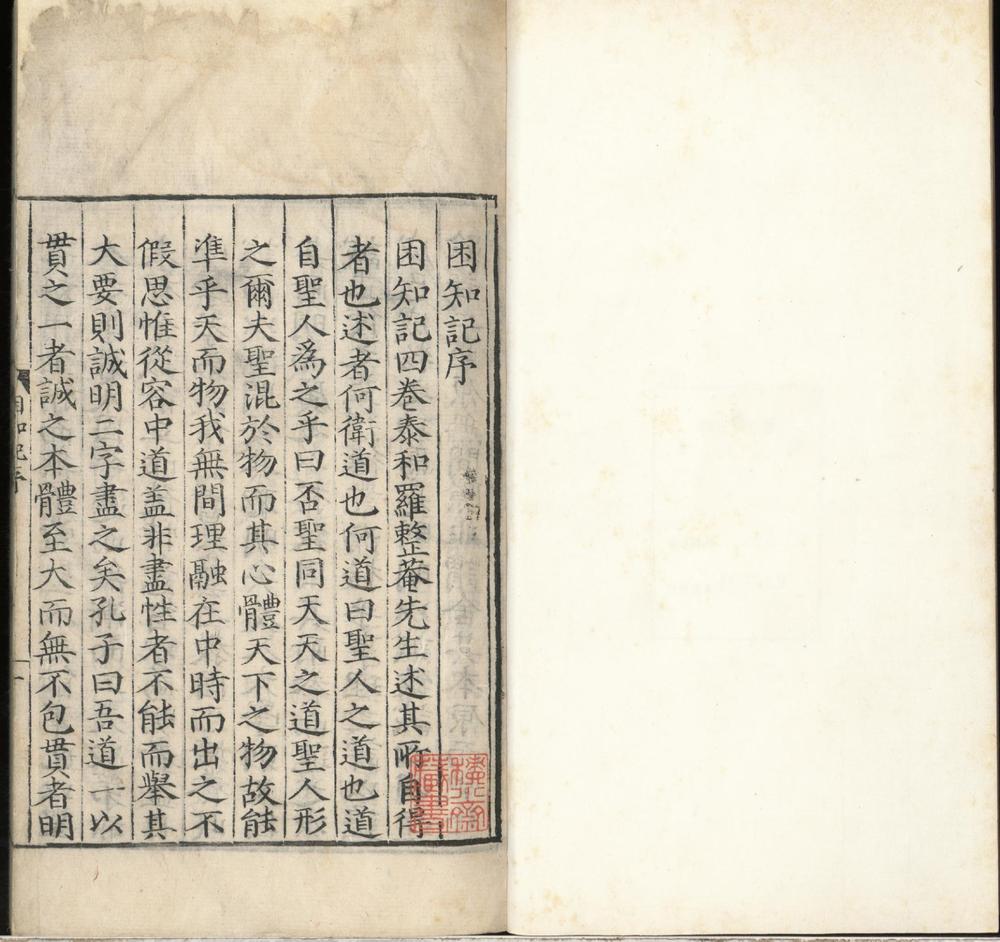 困知記序
困知記四卷泰和羅整菴先生述其所自得
者也述者何衛道也何道曰聖人之道也道
自聖人爲之乎曰否聖同天天之道聖人形
之爾夫聖混於物而其心體天下之物故能
準乎天而物我無間理融在中時而出之不
假思惟從容中道盖非盡性者不能而舉其
大要則誠明二字盡之矣孔子曰吾道一以
貫之一者誠之本體至大而無不包貫者明
困知記序
一